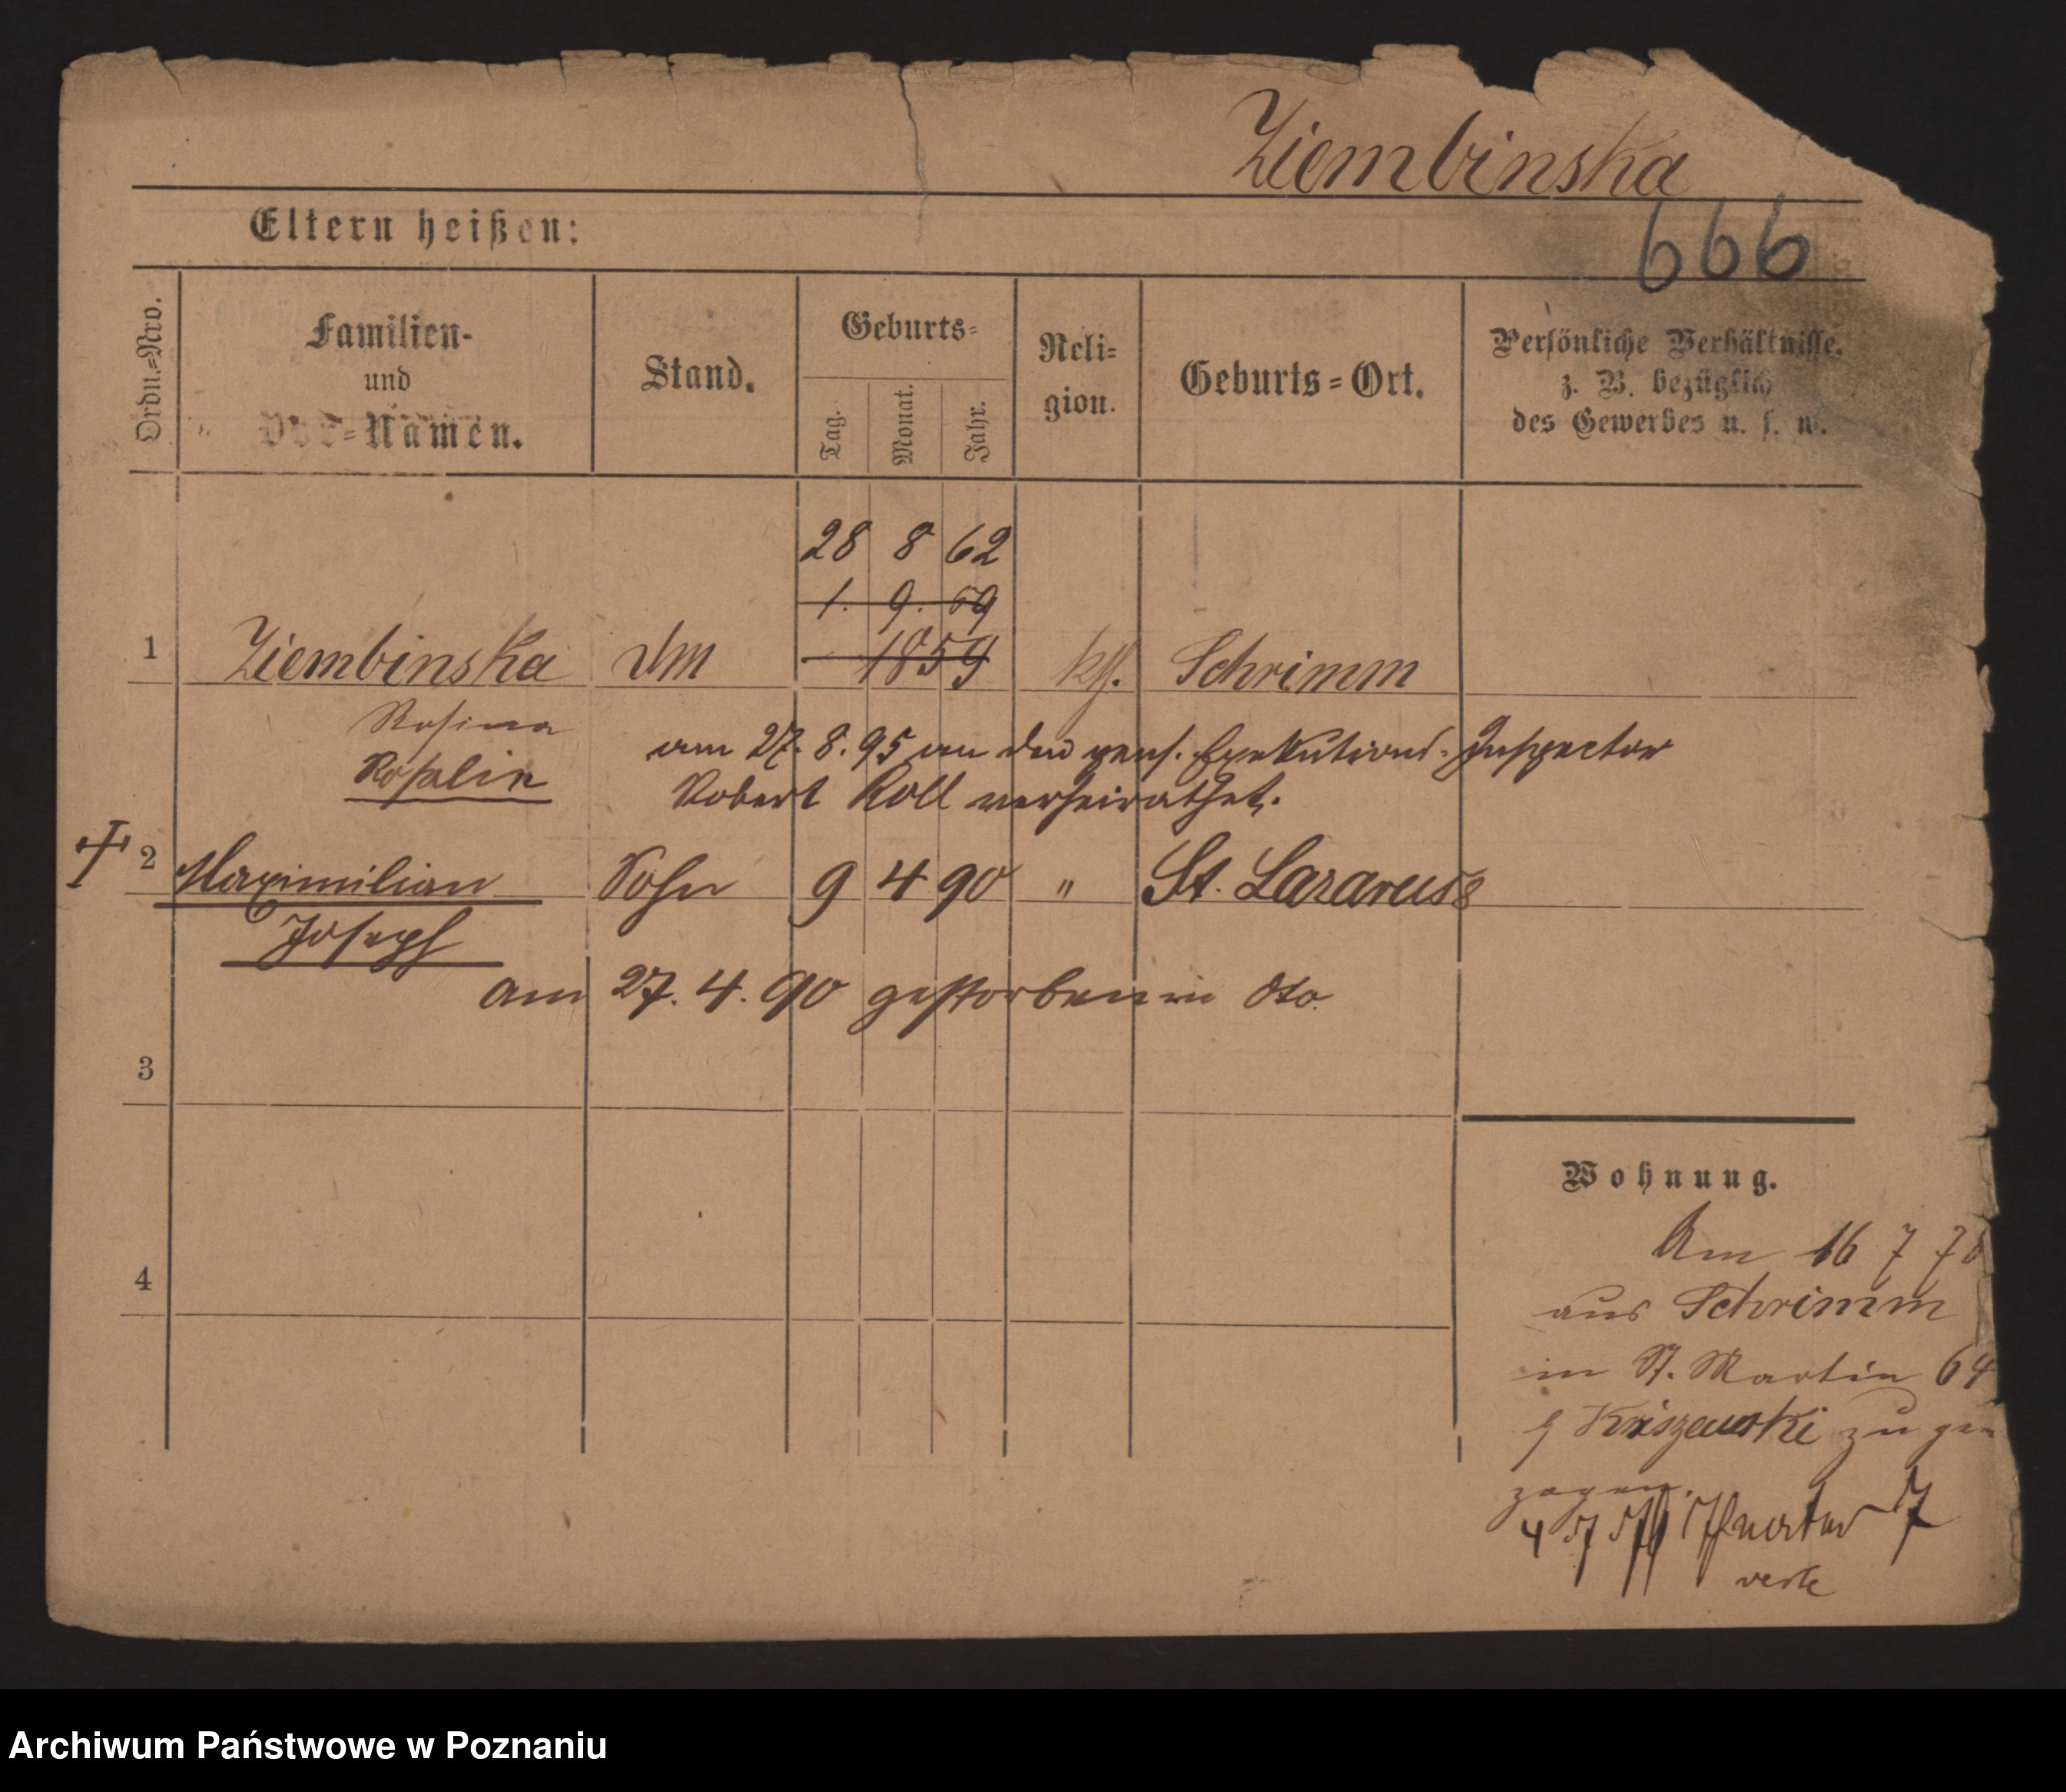 Ziembinska
666
Eltern heißen:
Ordn.=Nro.
Familien-
und
Vor=Namen.
Stand.
Geburts=
Tag.
Monat.
Jahr.
Reli=
gion.
Geburts=Ort.
Persönliche Verhältnisse,
z. B. bezüglich
des Gewerbes u. s. w.
28 8 62
1. 9. 59
1 Ziembinska 1859 kth. Schrimm
Rosina
Rosalie
am 27. 8. 95 an den pens. Exekutions-Inspector
Robert Koll verheirathet.
2 Maximilian Sohn 9 4 90 " St. Lazarus
Joseph
am 27. 4. 90 gestorben in dto.
3
4
Wohnung.
Am 16 7 76
aus Schrimm
in St. Martin 64
zu ge
zogen.
7
Archiwum Państwowe w Poznaniu